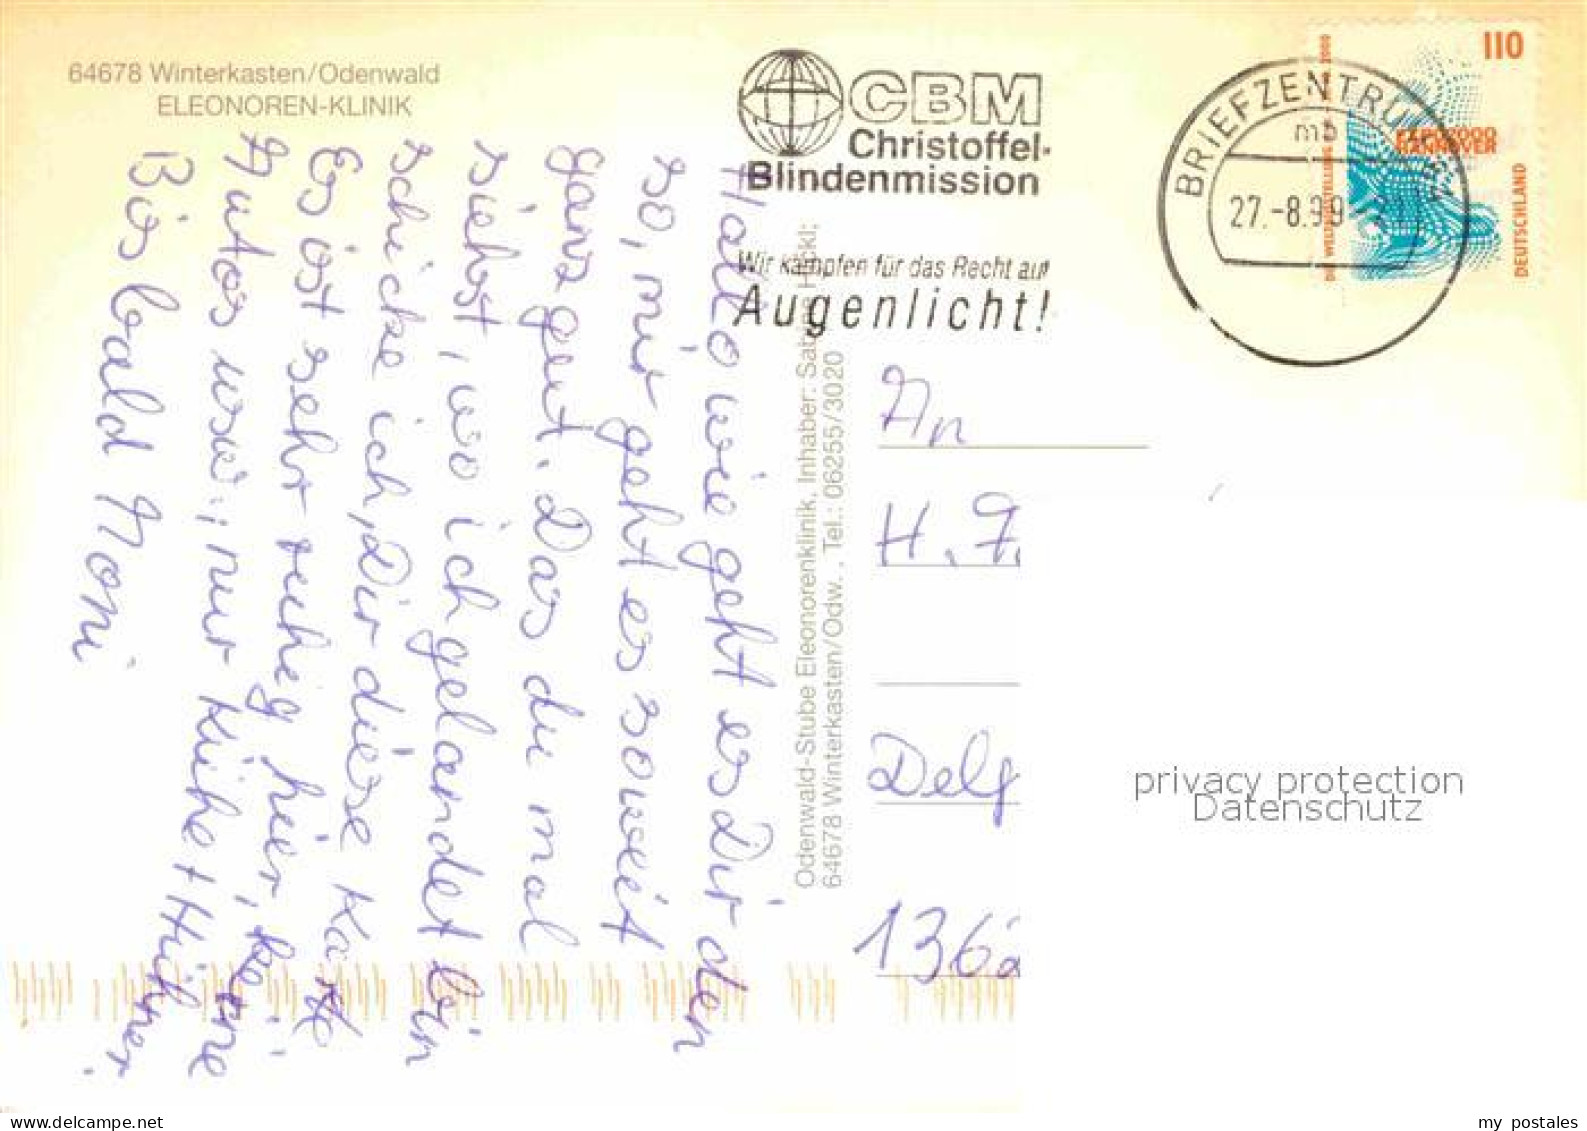 64678 Winterkasten/Odenwald
ELEONOREN-KLINIK
CBM
Christoffel-
Blindenmission
Wir kämpfen für das Recht auf
Augenlicht!
BRIEFZENTRUM
mb
27.-8.99-21
110
EXPO2000
HANNOVER
DEUTSCHLAND
DIE WELTAUSSTELLUNG 2000
Hallo wie geht es Dir den
so, mir geht es soweit
ganz gut. Das du mal
siehst, wo ich gelandet bin
schicke ich, Dir diese Karte
Es ist sehr ruhig hier, keine
Autos usw; nur Kühe + Hühner.
Bis bald Moni
Odenwald-Stube Eleonorenklinik, Inhaber:
64678 Winterkasten/Odw. , Tel.: 06255/3020
An
H. F.
136a
privacy protection
Datenschutz
my postales